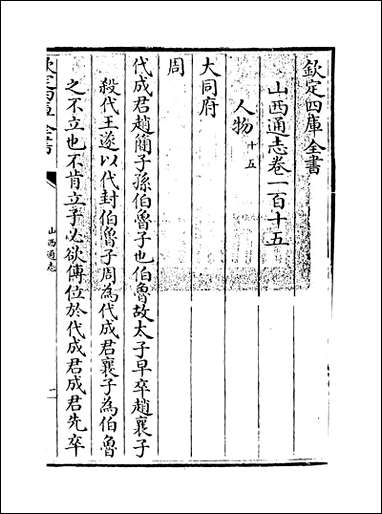 欽定四庫全書
山西通志卷一百十五
人物十五
大同府
周
代成君趙簡子孫伯魯子也伯魯故太子早卒趙襄子
殺代王遂以代封伯魯子周為代成君襄子為伯魯
之不立也不肯立子必欲傳位於代成君成君先卒
山西通志